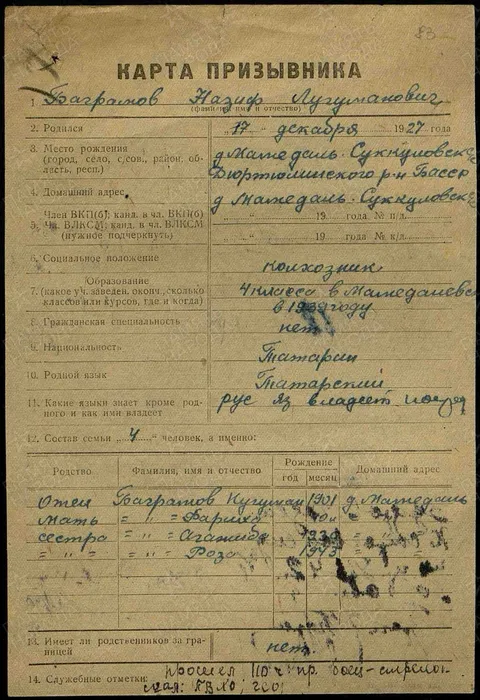 83
КАРТА ПРИЗЫВНИКА
1. Баграмов Назиф Лугуманович
(фамилия, имя и отчество)
2. Родился „17“ декабря 1927 года
3. Место рождения д Мамедаль Суккуловск
(город, село, с/сов., район, об- Дюртюлинского р-н Басср
ласть, респ.)
4. Домашний адрес д Мамедаль. Суккуловск
Член ВКП(б); канд. в чл. ВКП(б) „ “ 19 года № п/д.
5. Чл. ВЛКСМ; канд. в чл. ВЛКСМ
(нужное подчеркнуть) „ “ 19 года № к/д.
6. Социальное положение колхозник
Образование
7. (какое уч. заведен. оконч., сколько 4 класса в Мамедалевс
классов или курсов, где и когда) в 1939 году
8. Гражданская специальность нет
9. Национальность Татарин
10. Родной язык Татарский
11. Какие языки знает кроме род- рус яз владеет
ного и как ими владеет
12. Состав семьи „4“ человек, а именно:
Родство Фамилия, имя и отчество Рождение Домашний адрес
год месяц
Отец Баграмов Лугуман 1901 д. Мамедаль
Мать = „ =
сестра = „ =
= „ = = „ = Роза 1943
13. Имеет ли родственников за гра- нет.
ницей
14. Служебные отметки: прошел 110 ч. пр. боец-стрелок